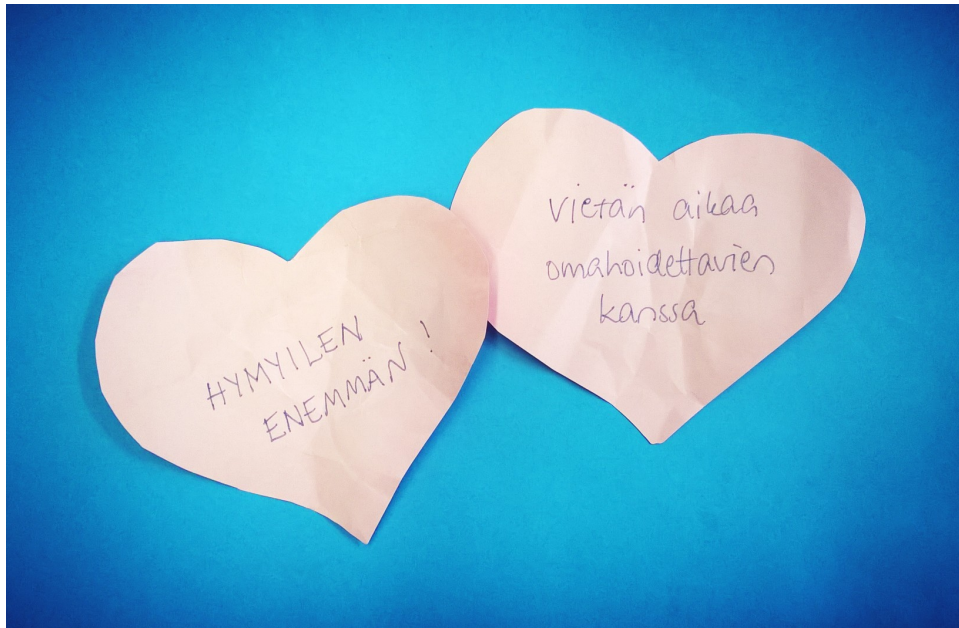 HYMYILEN
ENEMMÄN!
vietän aikaa
omahoidettavien
kanssa